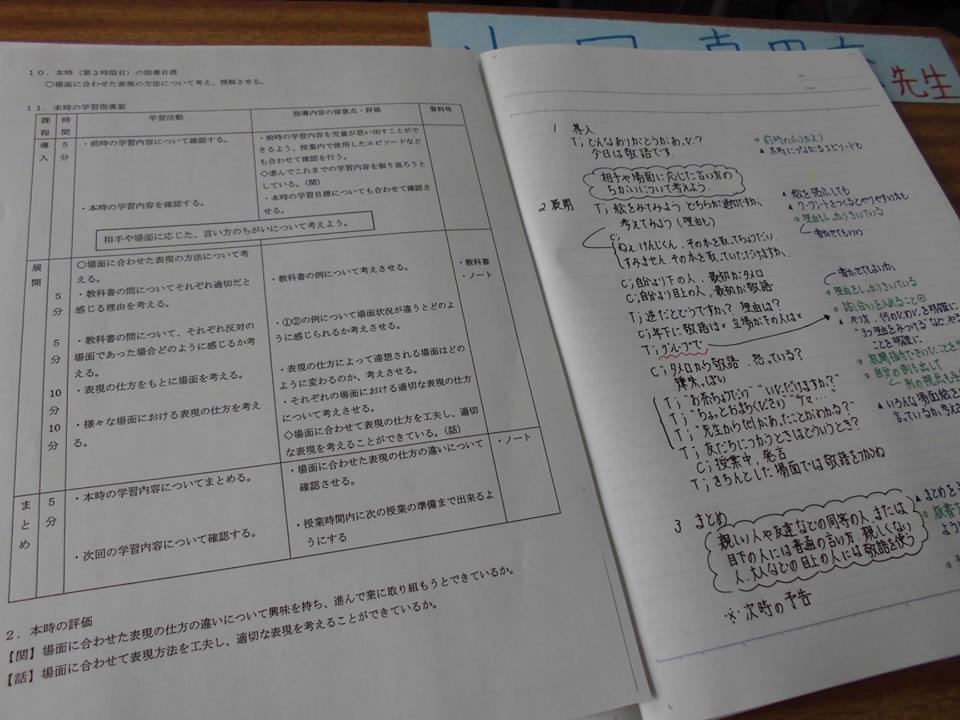 先生
10．本時（第3時間目）の指導目標
○場面に合わせた表現の方法について考え、理解させる。
11．本時の学習指導案
課程
時間
学習活動
指導内容の留意点・評価
資料等
導入
5分
・前時の学習内容について確認する。
・本時の学習内容を確認する。
・前時の学習内容を児童が思い出すことが
できるよう、授業内で使用したエピソードなど
も合わせて確認を行う。
◇進んでこれまでの学習内容を振り返ろうと
している。（関）
・本時の学習目標についても合わせて確認さ
せる。
相手や場面に応じた、言い方のちがいについて考えよう。
展開
5分
5分
10分
10分
○場面に合わせた表現の方法について考
える。
・教科書の問についてそれぞれ適切だと
感じる理由を考える。
・教科書の問について、それぞれ反対の
場面であった場合どのように感じるか考
える。
・表現の仕方をもとに場面を考える。
・様々な場面における表現の仕方を考え
る。
・教科書の例について考えさせる。
・①②の例について場面状況が違うとどのよ
うに感じられるか考えさせる。
・表現の方法によって連想される場面はどの
ように変わるのか、考えさせる。
・それぞれの場面における適切な表現の仕方
について考えさせる。
◇場面に合わせて表現の仕方を工夫し、適切
な表現を考えることができている。（話）
・教科書
・ノート
まとめ
5分
・本時の学習内容についてまとめる。
・次回の学習内容について確認する。
・場面に合わせた表現の仕方の違いについて
確認させる。
・授業時間内に次の授業の準備まで出来るよ
うにする
・ノート
2．本時の評価
【関】場面に合わせた表現の仕方の違いについて興味を持ち、進んで業に取り組もうとできているか。
【話】場面に合わせて表現方法を工夫し、適切な表現を考えることができているか。
1 導入
T; どんなありがとうがあったﾞ?
今日は敬語です.
相手や場面に応じた言い方の
ちがいについて考えよう.
2 展開
T; 絵をみてみよう どちらが適切ですか.
考えてみよう（理由も）
C;
ねぇ.けんじくん.その本を取ってちょうだい.
すみません.その本を取っていただけますか.
C; 自分より下の人. 最初がタメ口
C; 自分より目上の人. 最初が敬語
T; 逆だとどうですか? 理由は?
C; 年下に敬語は× 立場が下の人は×
T; グループで
C; タメ口から敬語 怒っている?
嫌味っぽい
T; "お茶ちょうだい" "いただけますか?"
T; "ちょっとまちください"
T; "先生から
T; 友だちにつかうときはどういうとき?
C; 授業中, 発言
T; きちんとした場面では敬語をつかうね
3 まとめ
親しい人や友達などの同等の人、または
目下の人には普通の言い方. 親しくない
人.大人などの目上の人には敬語を使う
※ 次時の予告
前時のふりかえり
本時につながるエピソードも
理由もしっかりきいている
書かせてもいい
理由もしっかりきいている
いろんな場面絵を
まとめを